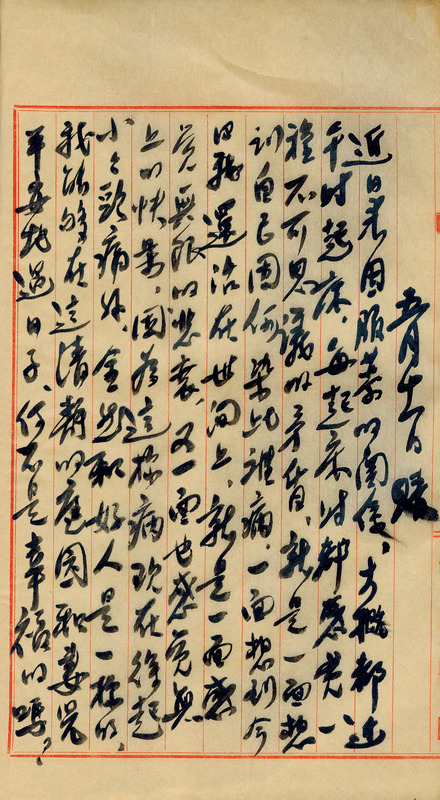 五月十一日 晴
近日来因服药的关系，大概都近
午时起床，每起床时都感觉一
种不可思议的矛盾，就是一面想
到自己因何染此谁病，一面想到今
日我还活在世间上，就是一面感
觉无限的悲哀，又一面也感觉无
上的快乐，因为这样病现在除起
小小头痛外，全然和好人是一样的，
我能够在這清静的庭园和妻儿
平安地過日子、何不是幸福的嗎？